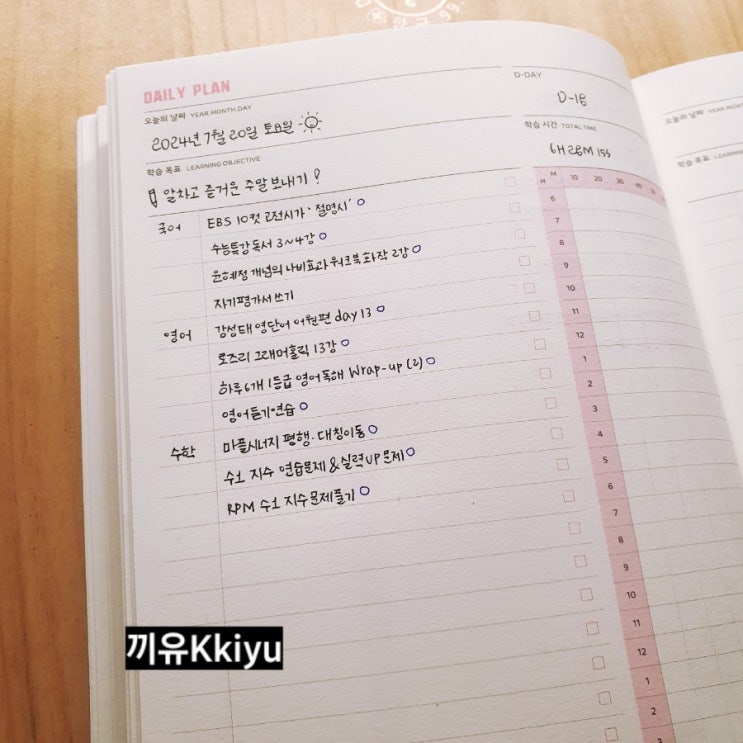 DAILY PLAN
오늘의 날짜 YEAR.MONTH.DAY
2024년 7월 20일 토요일
학습 목표 LEARNING OBJECTIVE
알차고 즐거운 주말 보내기!
D-DAY
D-18
학습 시간 TOTAL TIME
6H 28M 15S
국어 EBS 10컷 고전시가 '절명시'
수능특강 독서 3~4강
윤혜정 개념의 나비효과 워크북 화작 2강
자기평가서 쓰기
영어 강성태 영단어 어원편 day 13
로즈리 그래머홀릭 13강
하루 6개 1등급 영어독해 Wrap-up (2)
영어듣기 연습
수학 마플시너지 평행·대칭이동
수1 지수 연습문제 & 실력UP문제
RPM 수1 지수 문제풀기
H M 10 20 30 40
6
7
8
9
10
11
12
1
2
3
4
5
6
7
8
9
10
11
12
1
2
3
오늘의 날짜 YEAR.MONTH
학습 목표
끼유Kkiyu